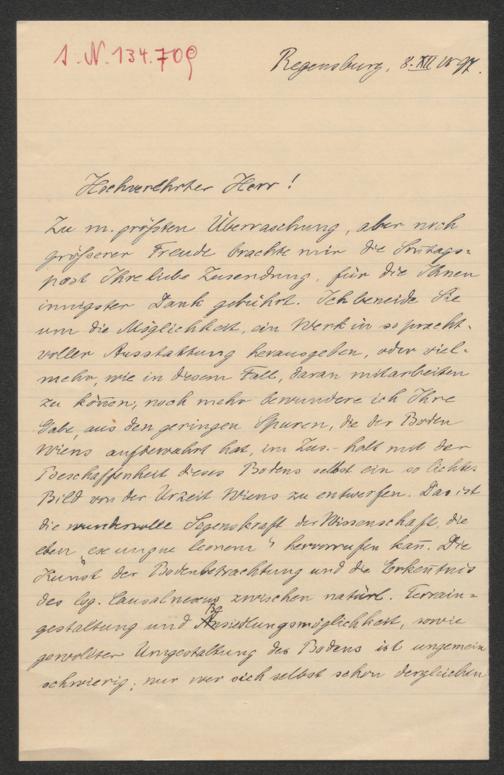 J. N. 134.709
Regensburg, 8. XII 1897.
Hochverehrter Herr!
Zu m. größten Überraschung, aber noch
größerer Freude brachte mir die Sontags-
post Ihre liebe Zusendung, für die Ihnen
innigster Dank gebührt. Ich beneide Sie
um die Möglichkeit, ein Werk in so pracht-
voller Ausstattung herausgeben, oder viel-
mehr, wie in diesem Fall, daran mitarbeiten
zu könen, noch mehr bewundere ich Ihre
Gabe, aus den geringen Spuren, die der Boden
Wiens aufbewahrt hat, im Zus.-halt mit der
Beschaffenheit dieses Bodens selbst ein so lichtes
Bild von der Urzeit Wiens zu entwerfen. Das ist
die wundervolle Segenskraft der Wissenschaft, die
eben „ex ungue leonem" hervorrufen kañ. Die
Kunst der Bodenbetrachtung und die Erkentnis
des log. Causalnexus zwischen natürl. Terrain-
gestaltung und Besiedlungsmöglichkeit, sowie
gewollter Umgestaltung des Bodens ist ungemein
schwierig; nur wer sich selbst schon dergleichen